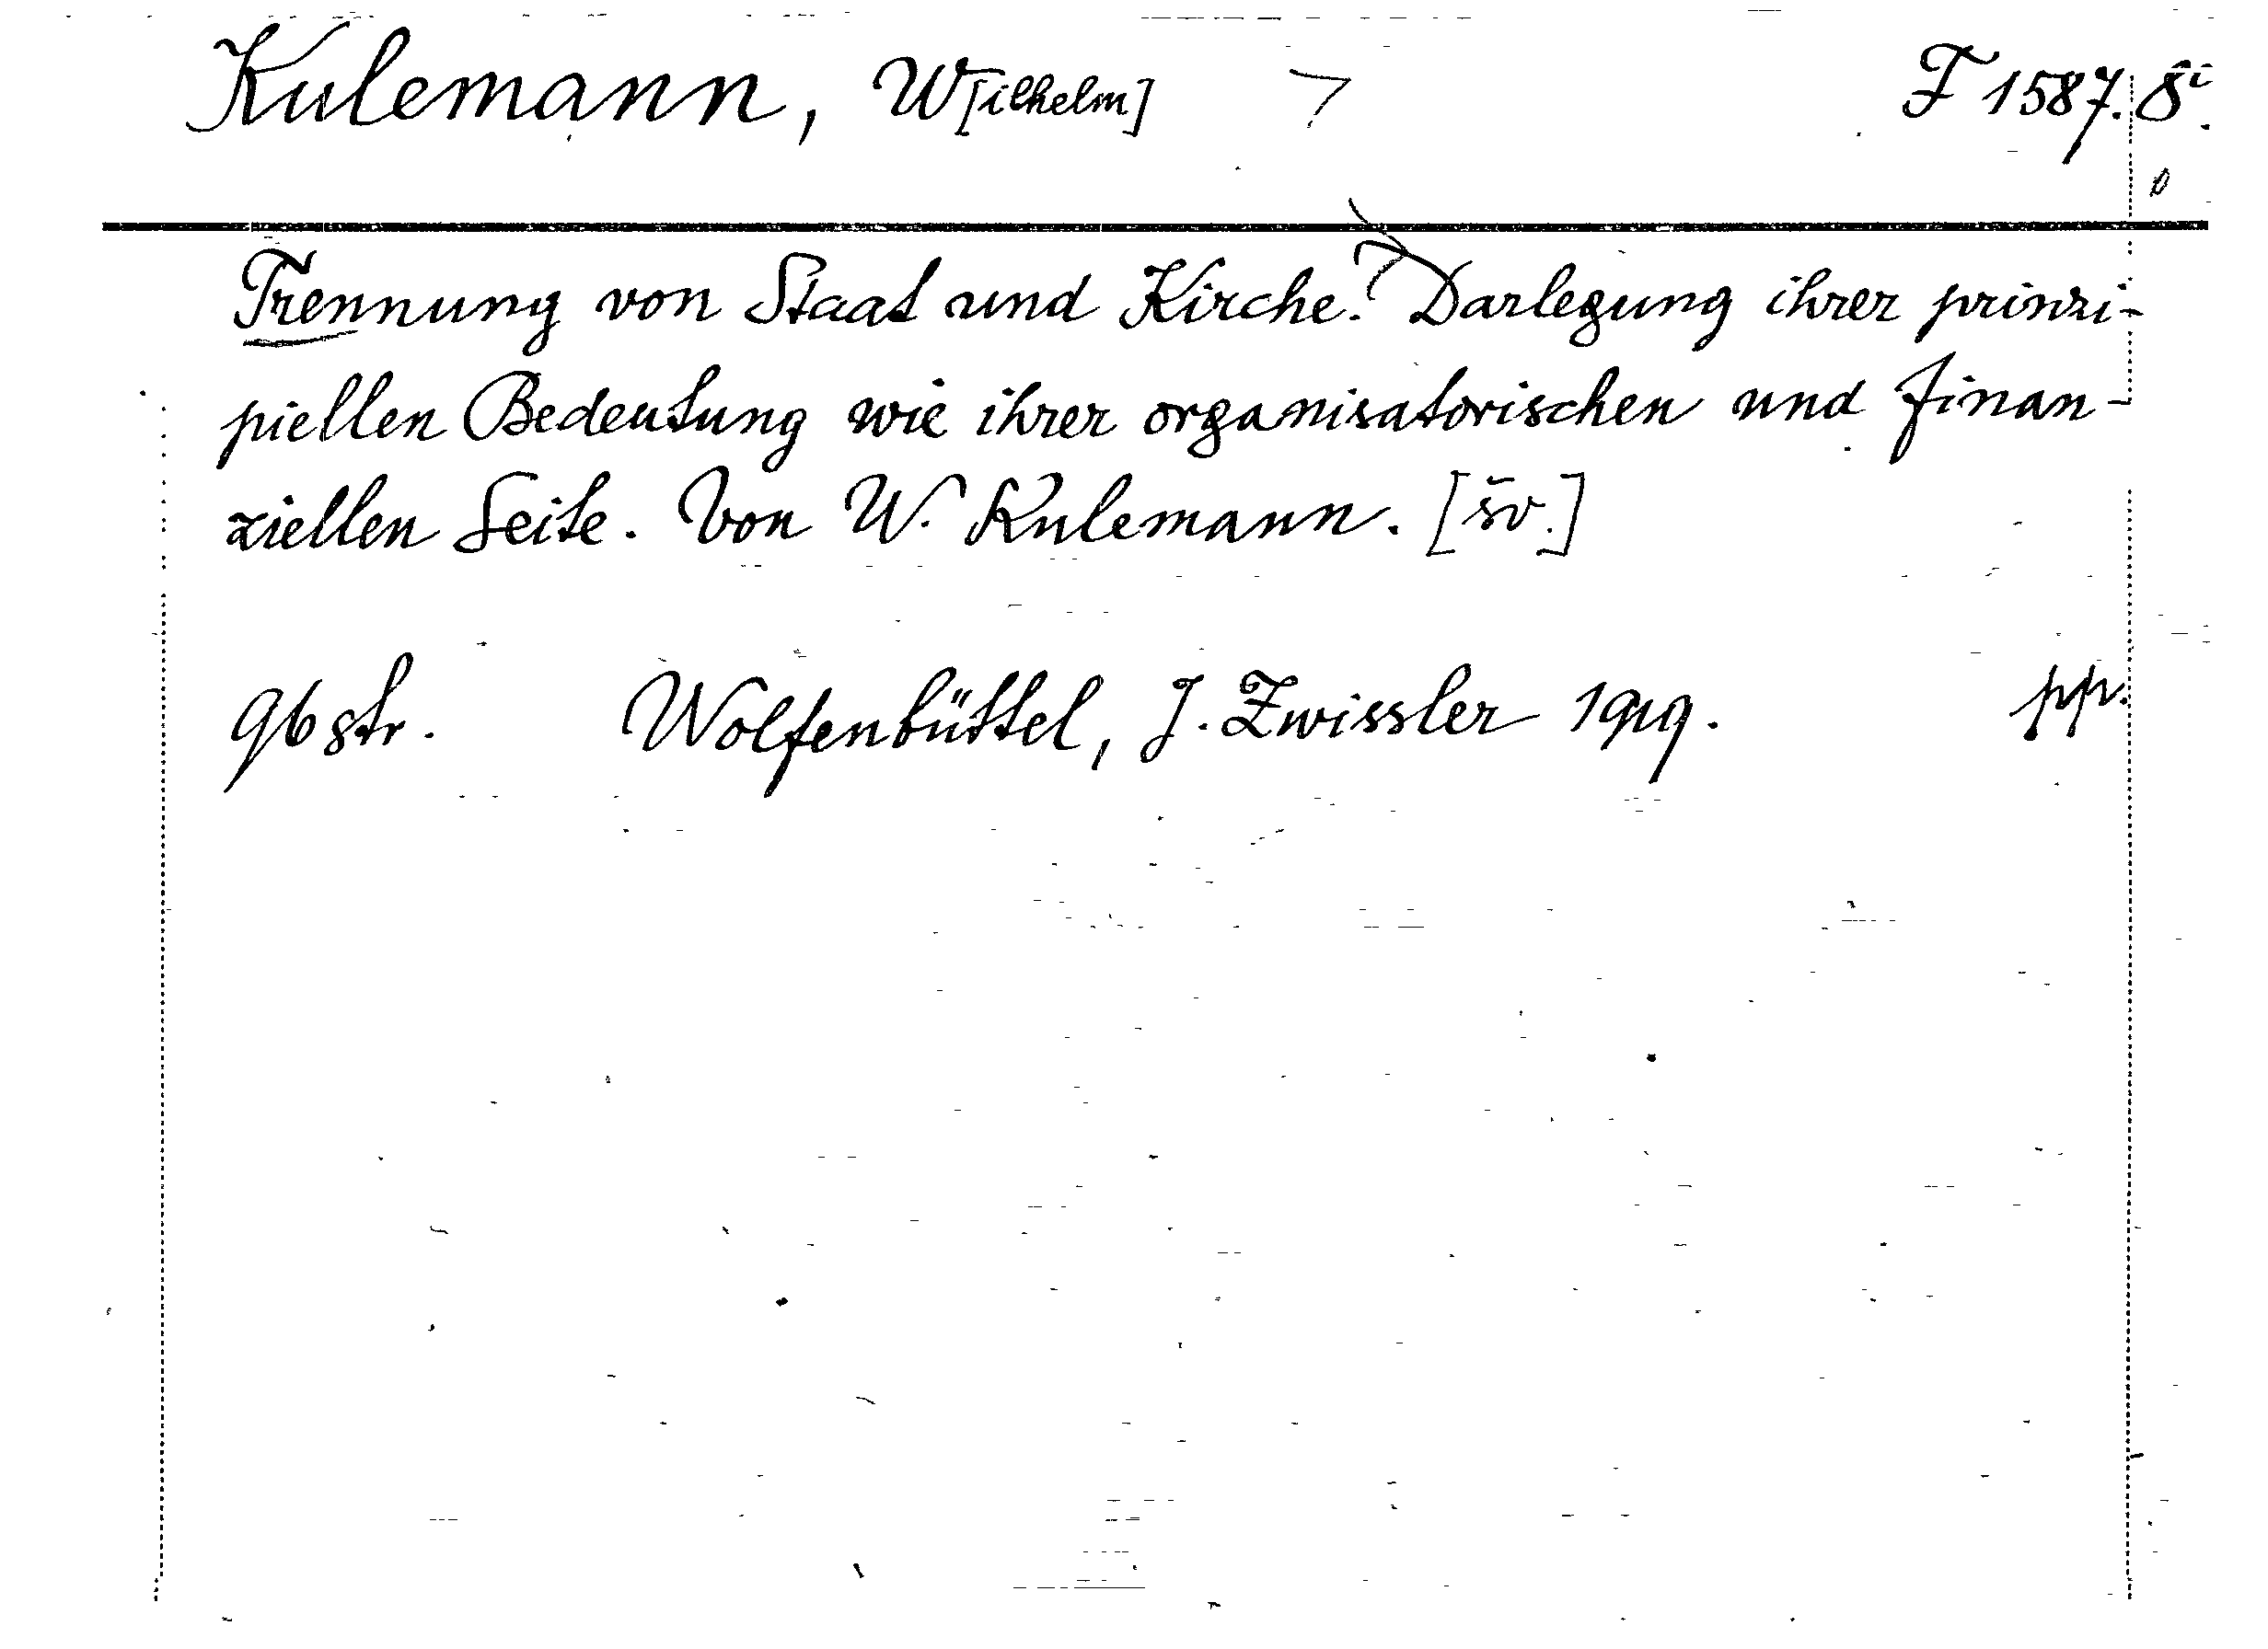 Kulemann, W[ilhelm] F 1587. 8°.
Trennung von Staat und Kirche. Darlegung ihrer prinzi-
piellen Bedeutung wie ihrer organisatorischen und finan-
ziellen Seite. Von W. Kulemann. [šv.]
96 str. Wolfenbüttel, J. Zwissler 1919. pp.